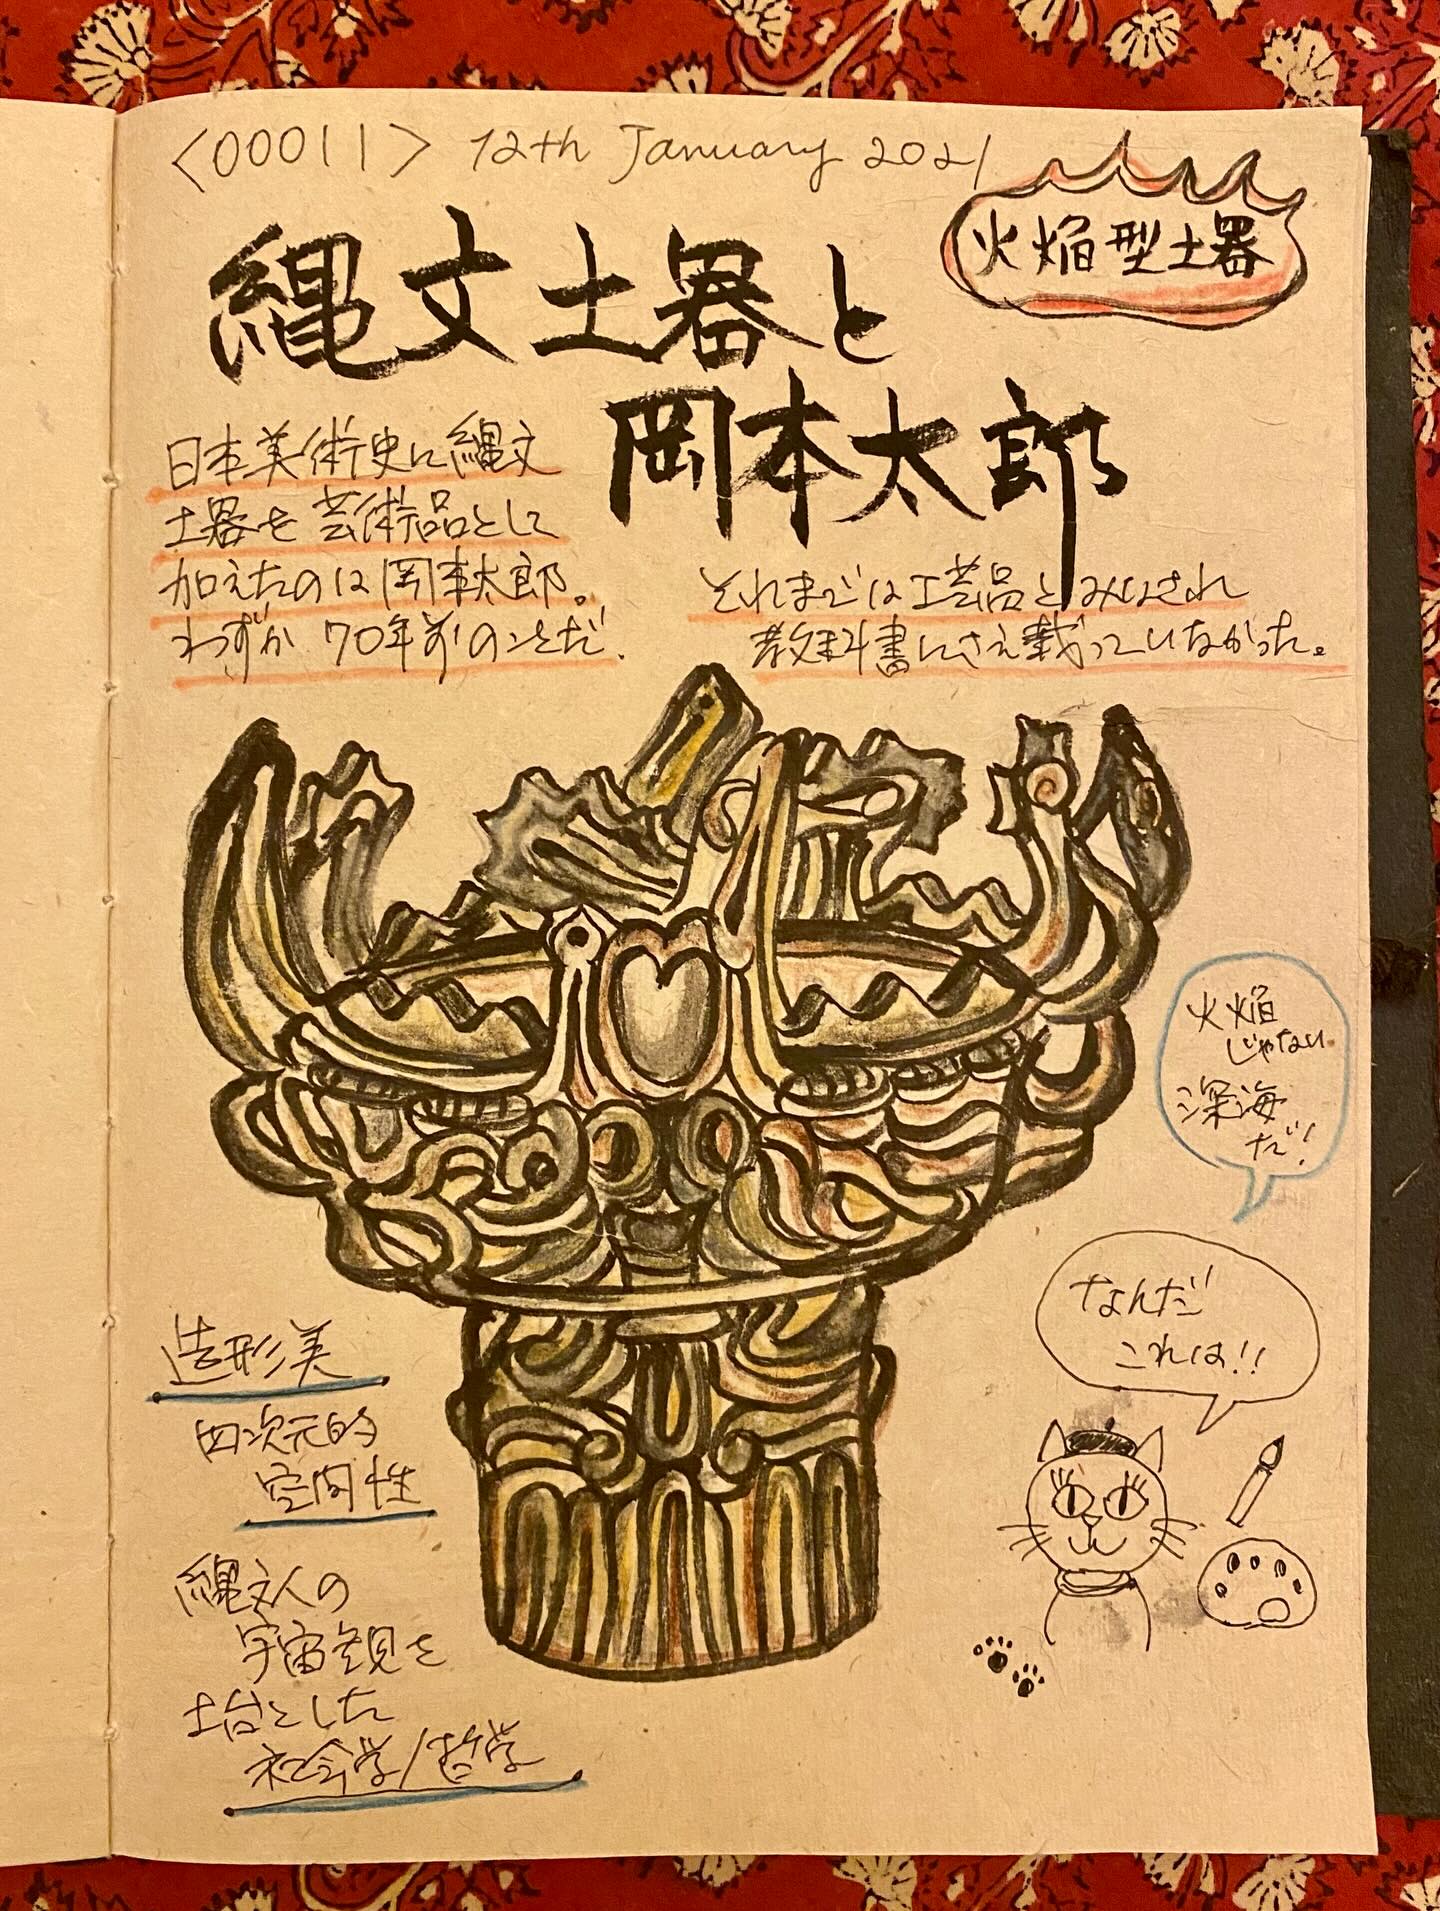 <00011> 12th January 2021
火焔型土器
縄文土器と
岡本太郎
日本美術史に縄文
土器を芸術品として
加えたのは岡本太郎。
わずか70年前のことだ.
それまでは工芸品とみなされ
教科書にさえ載っていなかった。
火焔
じゃない
深海
だ!
なんだ
これは!!
造形美
四次元的
空間性
縄文人の
宇宙観を
土台とした
社会学/哲学